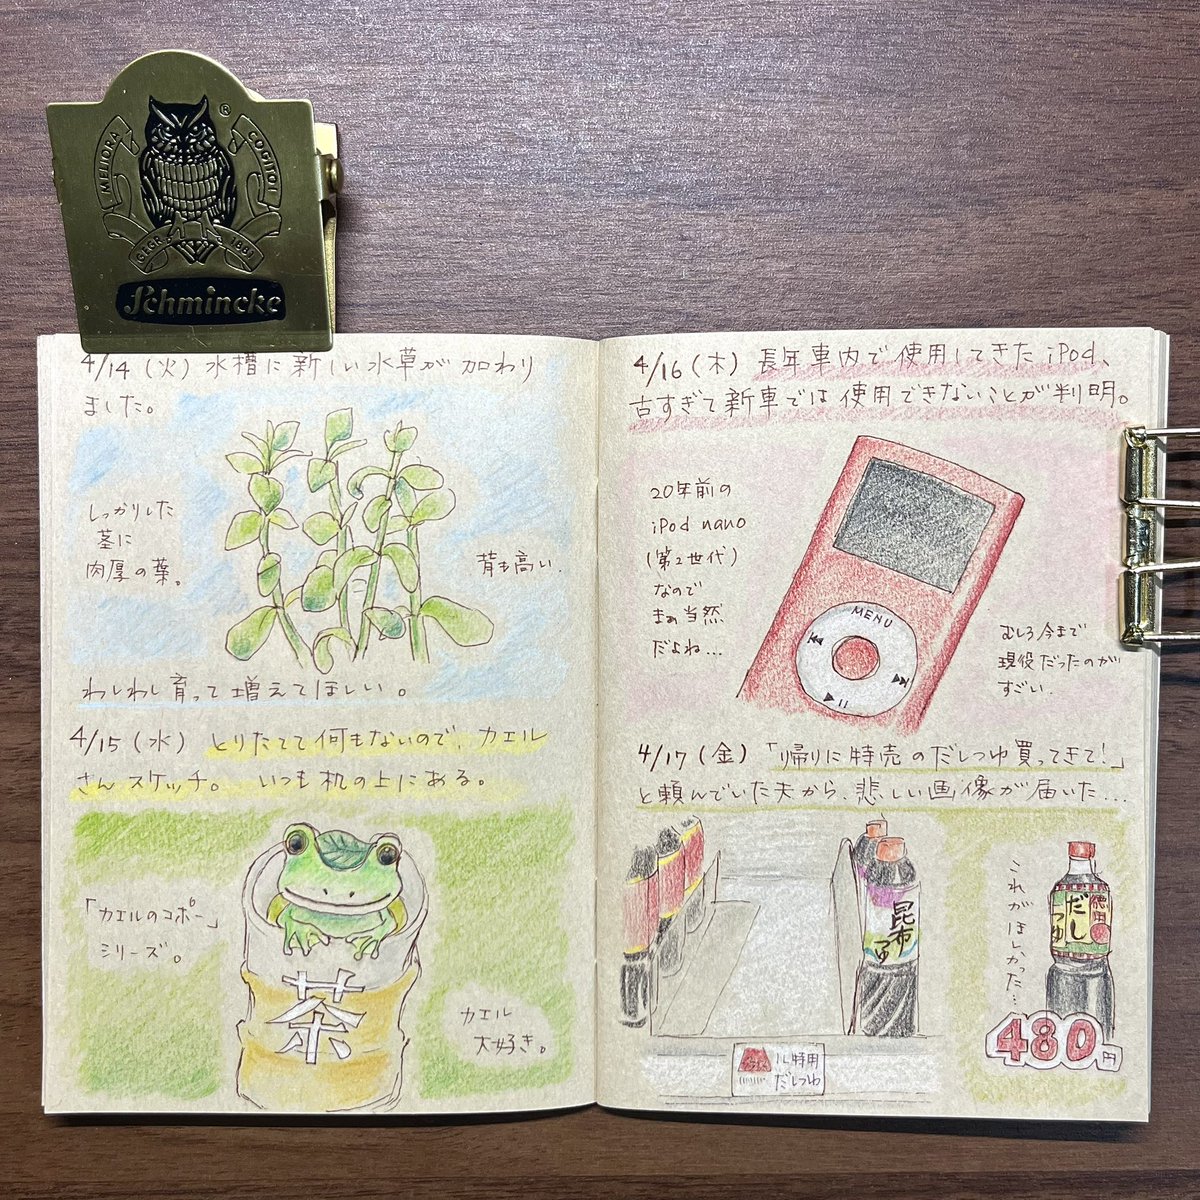 MELIORA COGITO!
GEGR. 1881
Schmincke
®
4/14 (火) 水槽に新しい水草が加わり
ました。
しっかりした
茎に
肉厚の葉。
背も高い.
わしわし育って増えてほしい。
4/15 (水) とりたてて何もないので、カエル
さんスケッチ。 いつも机の上にある。
「カエルのコポー」
シリーズ。
茶
カエル
大好き。
4/16 (木) 長年車内で使用してきたiPod、
古すぎて新車では使用できないことが判明。
20年前の
iPod nano
(第2世代)
なので
まぁ当然
だよね…
MENU
むしろ今まで
現役だったのが
すごい.
4/17 (金) 「帰りに特売のだしつゆ買ってきて!」
と頼んでいた夫から、悲しい画像が届いた…
昆布
つゆ
1L 特用
だしつゆ
これがほしかった…
徳用
だし
つゆ
480円